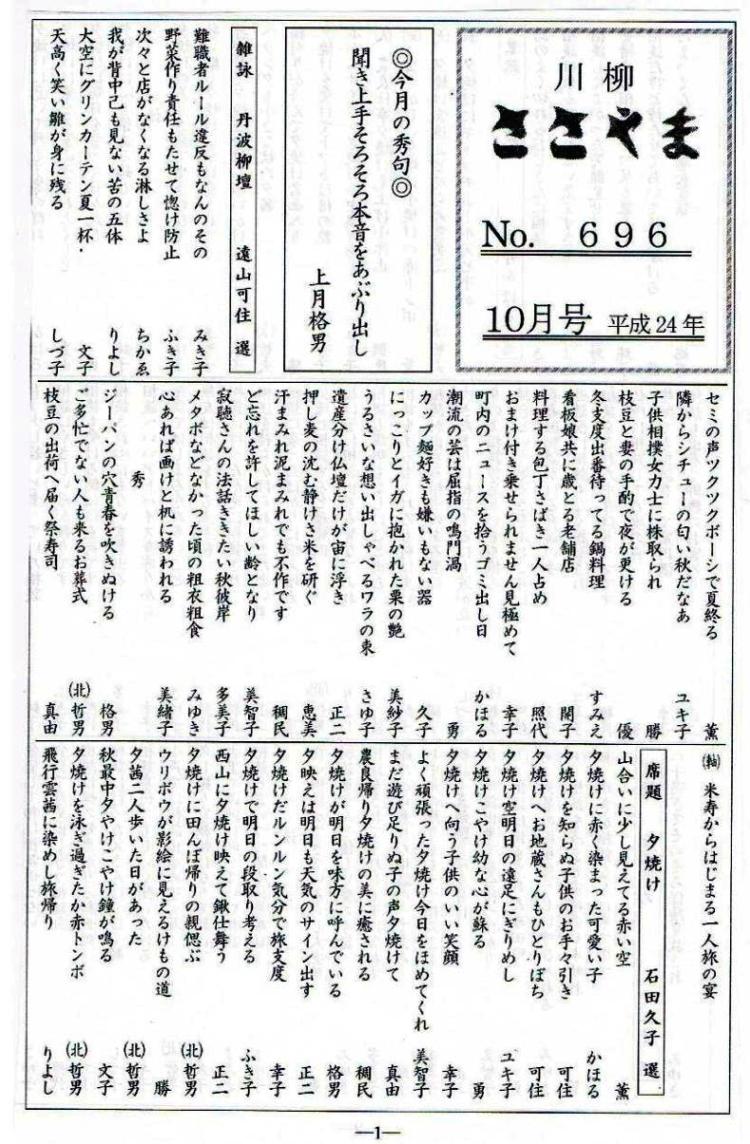 川柳
ささやま
No. 696
10月号 平成24年
◎今月の秀句◎
聞き上手そろそろ本音をあぶり出し
上月格男
雑詠 丹波柳壇 遠山可住 選
難職者ルール違反もなんのその みき子
野菜作り責任もたせて惚け防止 ふき子
次々と店がなくなる淋しさよ ちかゑ
我が背中己も見ない苦の五体 りよし
大空にグリンカーテン夏一杯・ 文子
天高く笑い皺が身に残る しづ子
セミの声ツクツクボーシで夏終る 薫
隣からシチューの匂い秋だなあ ユキ子
子供相撲女力士に株取られ 勝
枝豆と妻の手酌で夜が更ける 優
冬支度出番待ってる鍋料理 すみえ
看板娘共に歳とる老舗店 開子
料理する包丁さばき一人占め 照代
おまけ付き乗せられません見極めて 幸子
町内のニュースを拾うゴミ出し日 かほる
潮流の芸は屈指の鳴門渦 勇
カップ麺好きも嫌いもない器 久子
にっこりとイガに抱かれた栗の艶 美紗子
うるさいな想い出しゃべるワラの束 さゆ子
遺産分け仏壇だけが宙に浮き 正二
押し麦の沈む静けさ米を研ぐ 恵美
汗まみれ泥まみれでも不作です 稠民
ど忘れを許してほしい齢となり 美智子
寂聴さんの法話ききたい秋彼岸 多美子
メタボなどなかった頃の粗衣粗食 みゆき
心あれば画けと机に誘われる 美緒子
秀
ジーパンの穴青春を吹きぬける 格男
ご多忙でない人も来るお葬式 ㈱哲男
枝豆の出荷へ届く祭寿司 真由
(軸) 米寿からはじまる一人旅の宴
席題 夕焼け 石田久子 選
山合いに少し見えてる赤い空 薫
夕焼けに赤く染まった可愛い子 かほる
夕焼けを知らぬ子供のお手々引き 可住
夕焼けへお地蔵さんもひとりぼち 可住
夕焼け空明日の遠足にぎりめし ユキ子
夕焼けこやけ幼な心が蘇る 勇
夕焼けへ向う子供のいい笑顔 幸子
よく頑張った夕焼け今日をほめてくれ 美智子
まだ遊び足りぬ子の声夕焼けて 真由
農良帰り夕焼けの美に癒される 稠民
夕焼けが明日を味方に呼んでいる 格男
夕映えは明日も天気のサイン出す 正二
夕焼けだルンルン気分で旅支度 幸子
夕焼けで明日の段取り考える ふき子
西山に夕焼け映えて鍬仕舞う 正二
夕焼けに田んぼ帰りの親偲ぶ (北)哲男
ウリボウが影絵に見えるけもの道 勝
夕茜二人歩いた日があった (北)哲男
秋最中夕やけこやけ鐘が鳴る 文子
夕焼けを泳ぎ過ぎたか赤トンボ (北)哲男
飛行雲茜に染めし旅帰り りよし
—1—